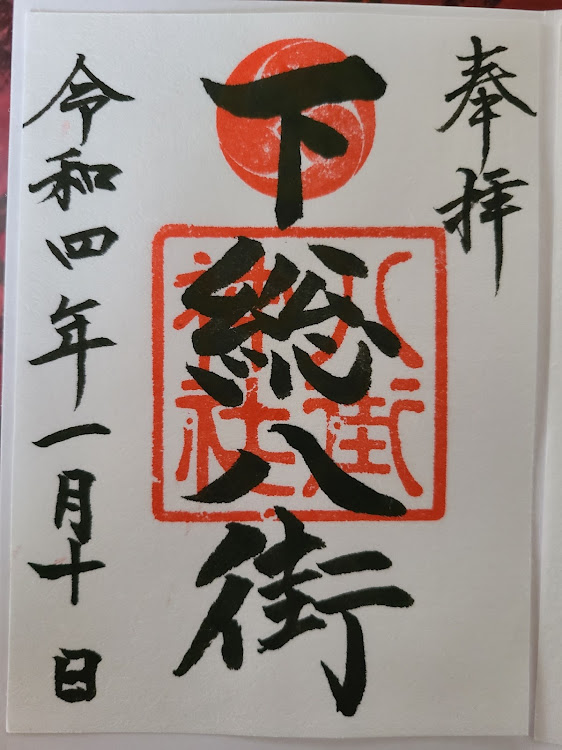 奉拝
下総八街
八街
神社
令和四年一月十日